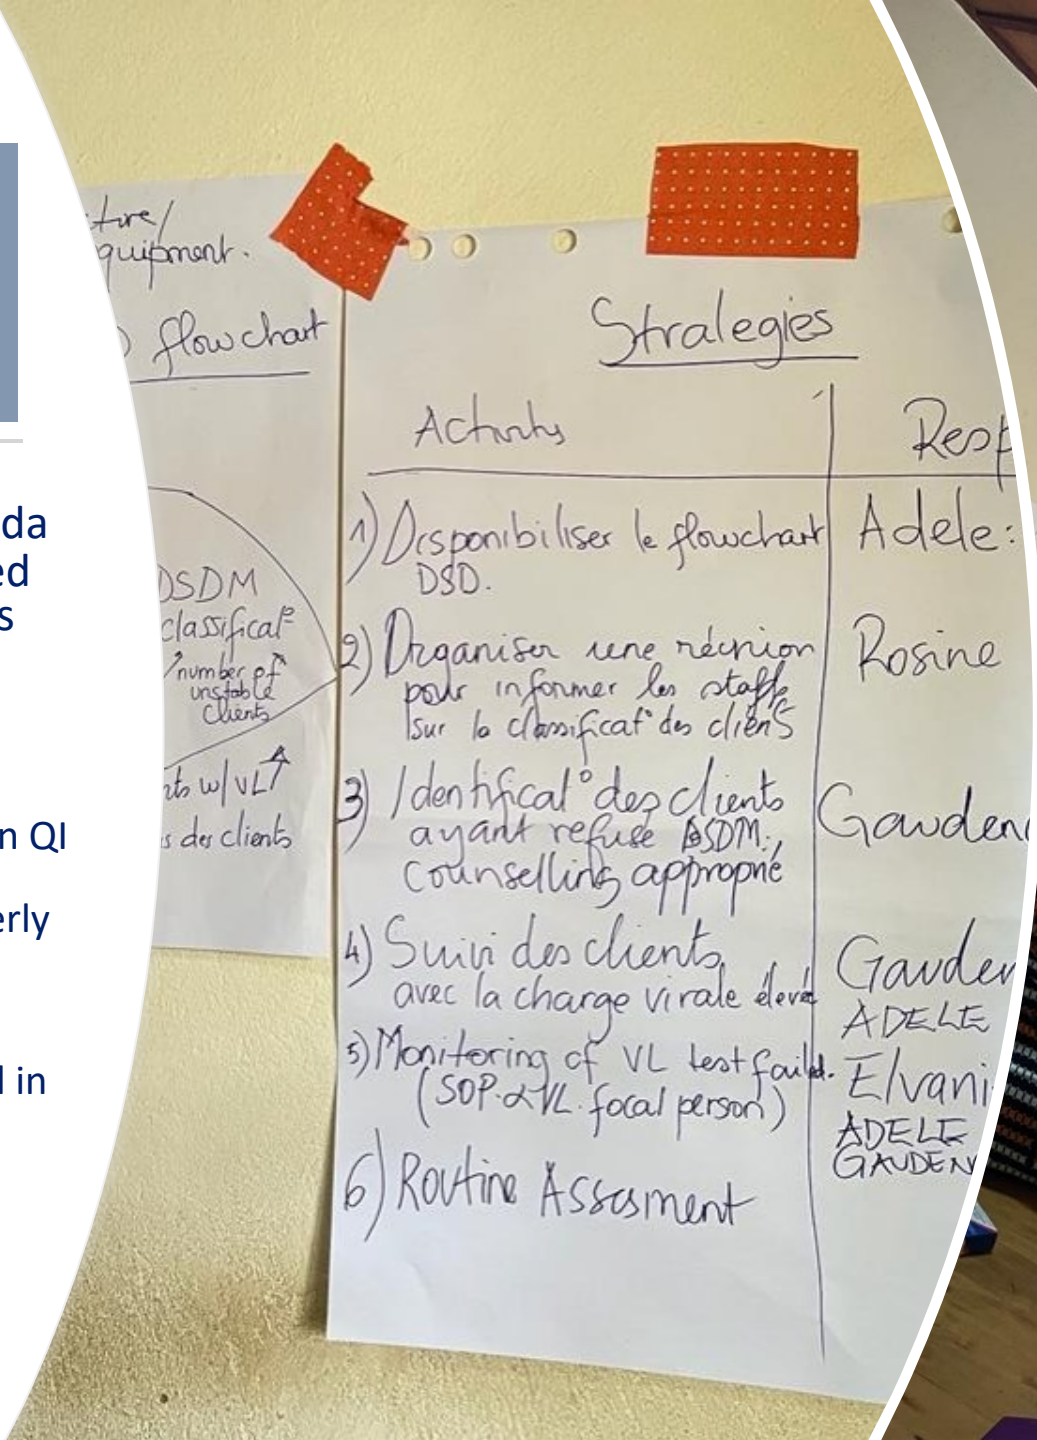 da
ed
s
n QI
erly
l in
ture/
quipment.
) flowchart
DSDM
classificat°
number of
unstable
clients
nts w/ VL↑
s des clients
Strategies
Activity
Resp
1) Disponibiliser le flowchart
DSD.
Adele:
2) Organiser une réunion
pour informer les staffs
sur la classificat° des clients
Rosine
3) Identificat° des clients
ayant refusé DSDM;
counselling approprié
Gauden
4) Suivi des clients
avec la charge virale élevé
Gauden
ADELE
5) Monitoring of VL test failed.
(SOP & VL focal person)
Elvani
ADELE
GAUDEN
6) Routine Assesment